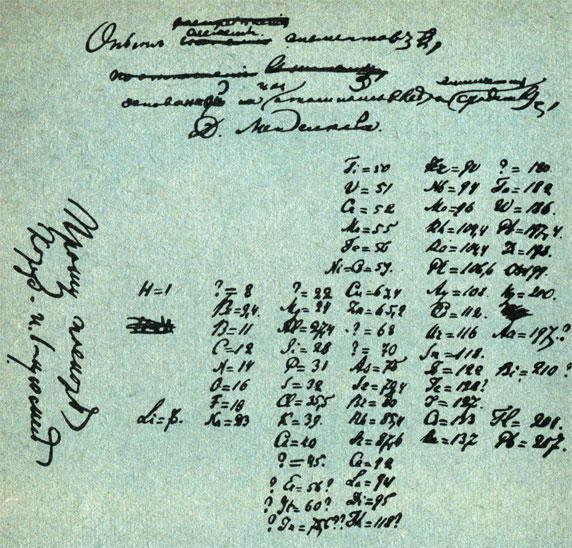 Опытъ системы элементовъ,
основанной на ихъ атомномъ вѣсѣ и химическомъ сходствѣ,
Д. Менделѣева.
Ti=50 Zr=90 ?=180.
V=51 Nb=94 Ta=182
Cr=52 Mo=96 W=186.
Mn=55 Rh=104,4 Pt=197,4
Fe=56 Ru=104,4 Ir=198.
Ni=Co=59. Pl=106,6 Os=199.
H=1 ?=8 ?=22 Cu=63,4 Ag=108. Hg=200.
Be=9,4. Mg=24 Zn=65,2 Cd=112.
B=11 Al=27,4 ?=68 Ur=116 Au=197?
C=12 Si=28 ?=70 Sn=118.
N=14 P=31 As=75 Sb=122 Bi=210?
O=16 S=32 Se=79,4 Te=128?
F=19 Cl=35,5 Br=80 I=127.
Li=7. Na=23 K=39. Rb=85,4 Cs=133 Tl=204.
Ca=40 Sr=87,6 Ba=137 Pb=207.
?=45. Ce=92
?Er=56? La=94
?Yt=60? Di=95
?In=75,6?? Th=118?